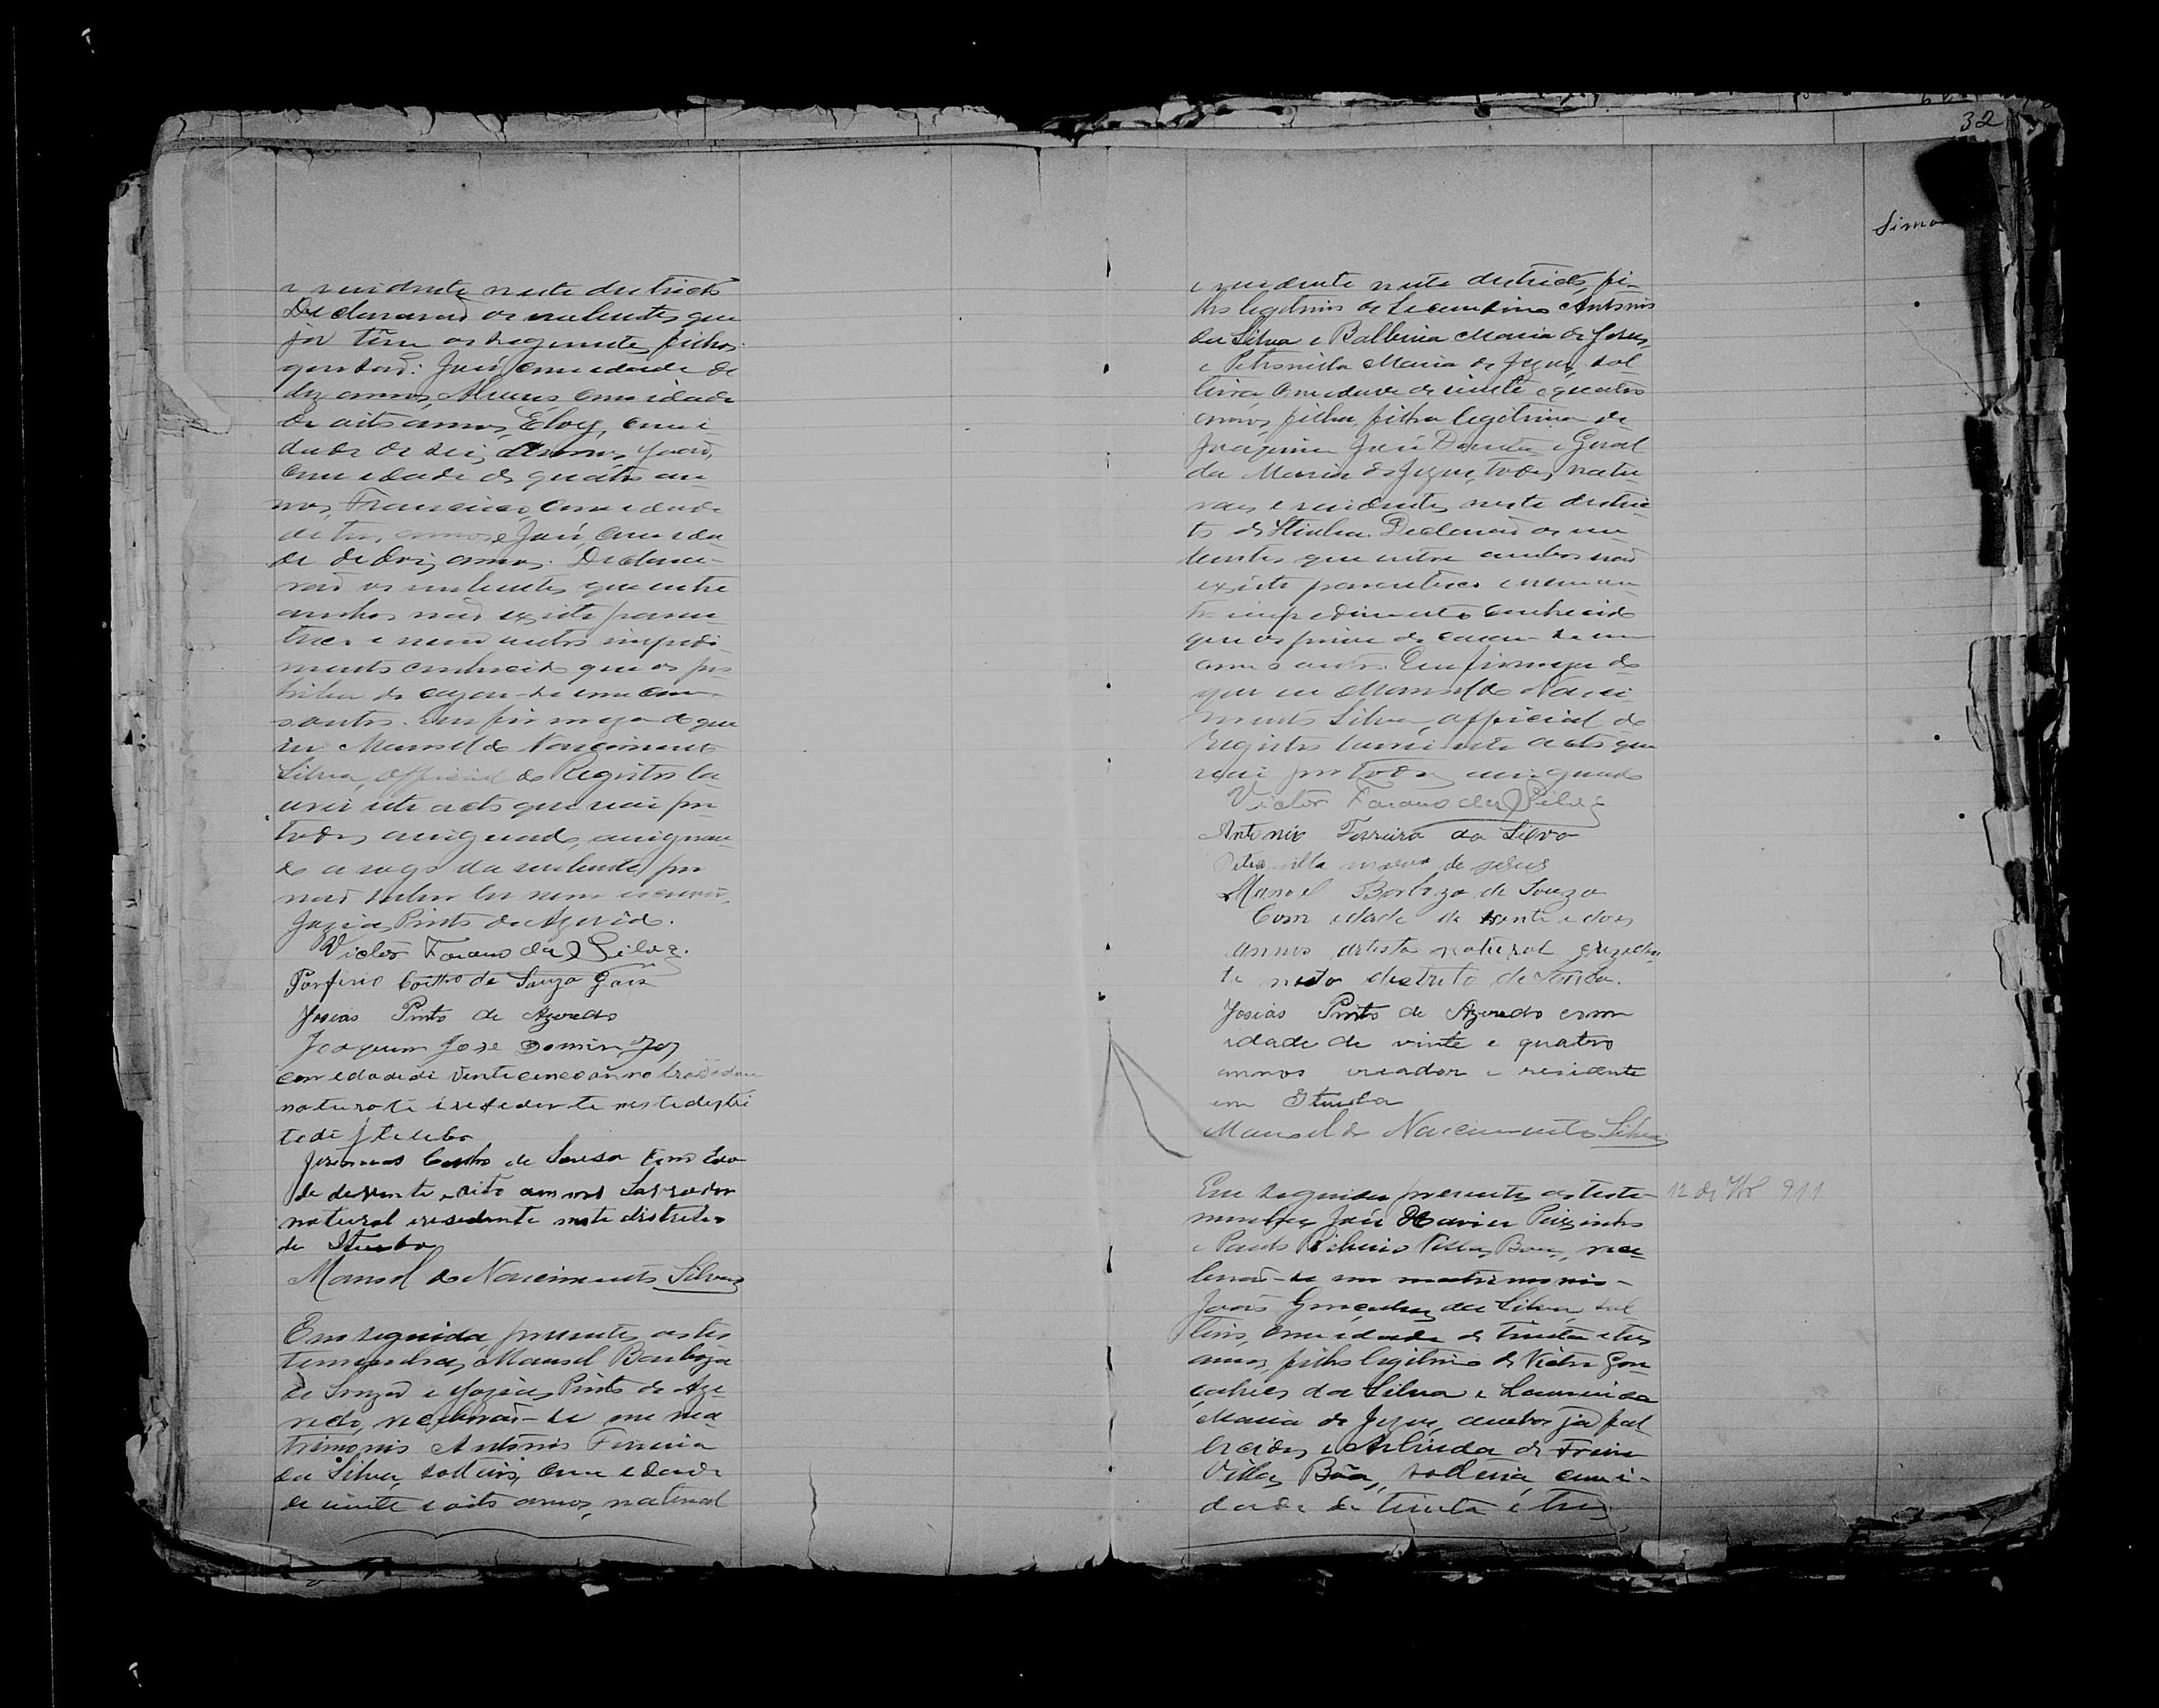 e residente neste districto
Declararaõ os nubentes que
já têm os seguintes filhos
que saõ: José, com idade de
dez annos, com idade
de oito annos, Eloy, com i
dade de seis annos, Joaõ,
com idade de quatro an-
nos, Francisco, com idade
de tres annos e José, com ida-
de de dois annos. Declara-
raõ os nubentes que entre
ambos naõ existe paren-
tesco e nem outro impedi-
mento conhecido que os pro
hiba de cazar-se um com
o outro. Em firmeza do que
eu Manoel do Nascimento
Silva, official do Registro la-
vrei este acto que vai por
todos assignado, assignan-
do a rogo da nubente, por
naõ saber ler nem escrever,
Jozias Pinto de Azevedo.
Victor da Silva.
Porfirio Coelho de Souza
Josias Pinto de Azevedo
Joaquim José Domingos
com edade de vinte cinco anno
natural e residente neste destri
to de
Coelho de Sousa com Eda
de de vinte e oito annos Lavrador
natural e residente neste distrito
de
Manoel do Nascimento Silva
Em seguida, presentes as tes
temunhas, Manoel Barboza
de Souza e Jozias Pinto de Aze-
vedo, receberaõ-se em ma
trimonio Antonio Ferreira
da Silva, solteiro, com edade
de vinte e oito annos, natural
32
Simo
e residente neste districto, fi-
lho legitimo de Secundino Antonio
da Silva e Balbina Maria de Jesus,
e Petronilla Maria de Jezus, sol
teira com edade de vinte e quatro
annos, filha filha legitima de
Joaquim José e Geral
da Maria de Jezus, todos natu
raes e residentes neste distric
to de Declaraõ os nu
bentes que entre ambos naõ
existe parentesco e nem ou
tro impedimento conhecido
que os prive de casar-se um
com o outro. Em firmeza do
que eu Manoel do Nasci
mento Silva, official do
registro lavrei este acto que
vai por todos assignado
Victor da Silva
Antonio Ferreira da Silva
Petronilla maria de jesus
Manoel Barboza de Souza
Com idade de e dois
annos artista natural e reziden
te nesto destrito de
Josias Pinto de Azevedo com
idade de vinte e quatro
annos criador e residente
em
Manoel do Nascimento Silva
Em seguida presentes as teste-
munhas José Xavier
e Paulo Villas Boas, rece
beraõ-se em matrimonio
Joaõ Gonçalves da Silva, sol
teiro, com idade de trinta e tres
annos, filho legitimo de Victor Gon
çalves da Silva e
Maria de Jezus, ambos já fal
lecidos, e Arlinda de Freire
Villas Bôas, solteira, com i-
dade de trinta e tres
12 de 911